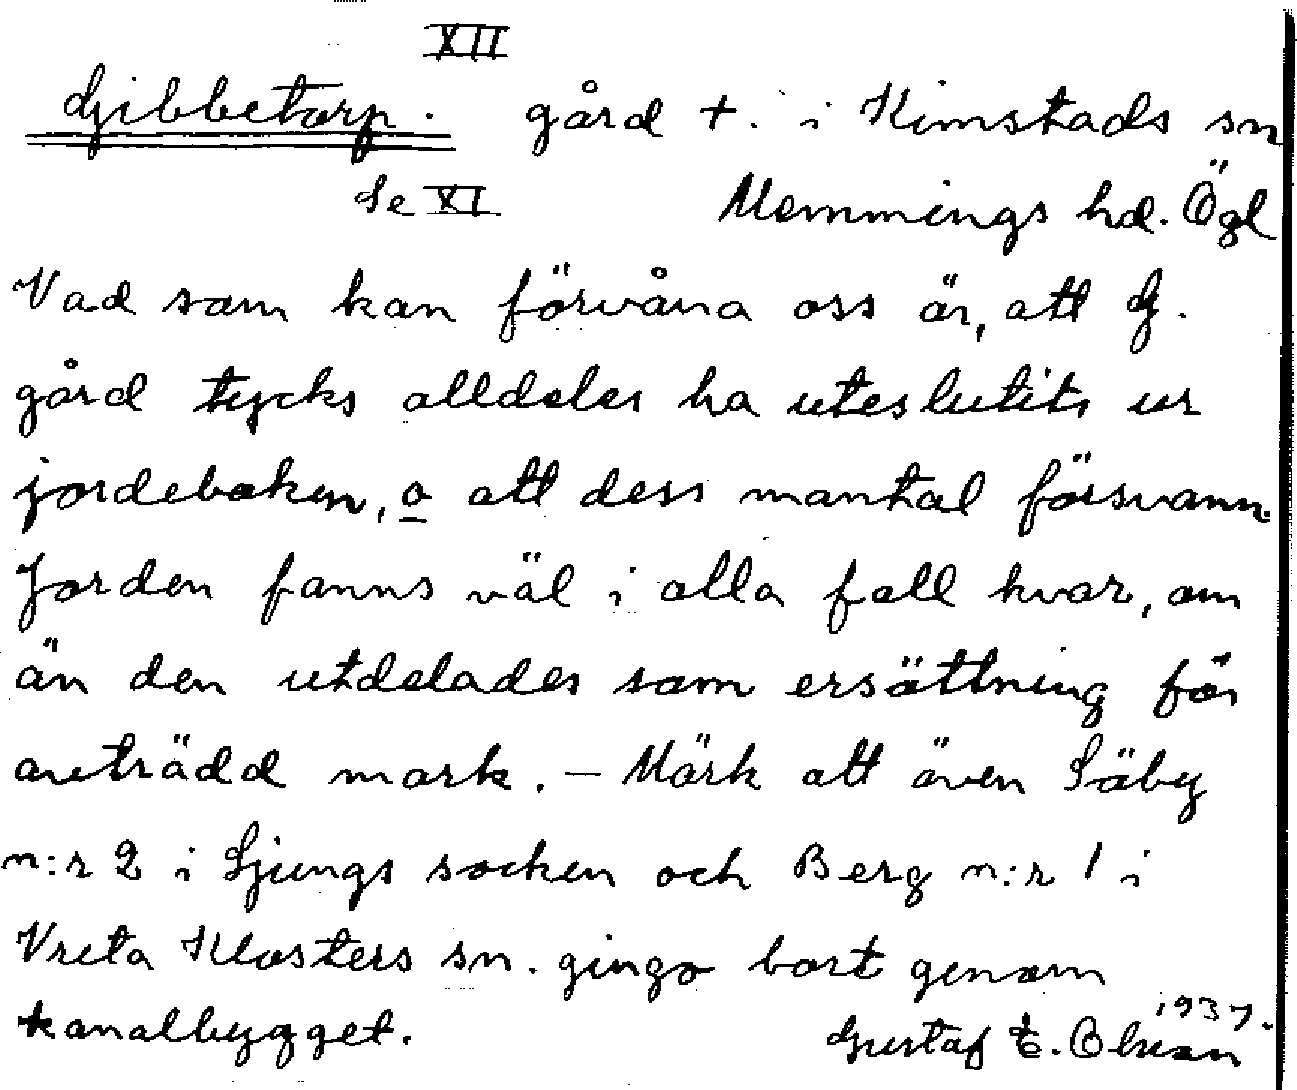 XII
Gibbetorp. gård +. i Kimstads sn
Se XI Memmings hd. Ögl
Vad som kan förvåna oss är, att G.
gård tycks alldeles ha uteslutits ur
jordeboken, o att dess mantal försvann.
Jorden fanns väl i alla fall kvar, om
än den utdelades som ersättning för
avträdd mark. – Märk att även Säby
n:r 2 i Ljungs socken och Berg n:r 1 i
Vreta Klosters sn. gingo bort genom
kanalbygget. Gustaf E. Olsson 1937.